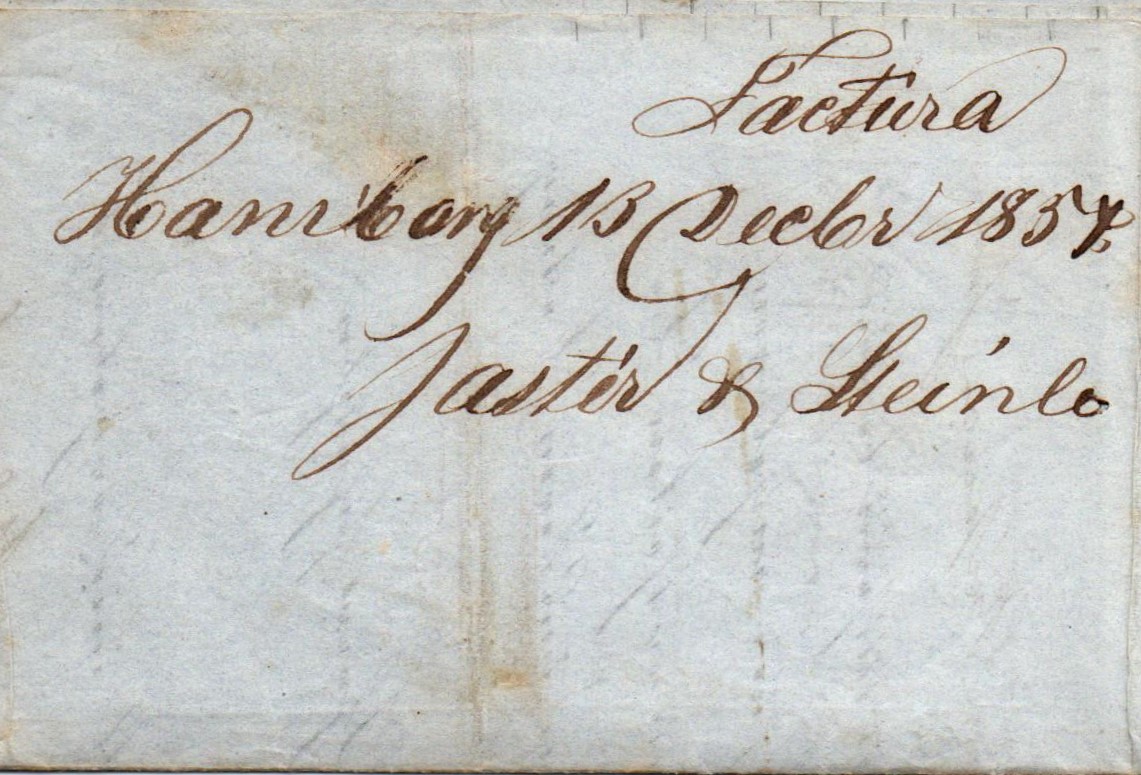 Factura
Hamborg 13 Decbr 1854
Jastér & Steinlo